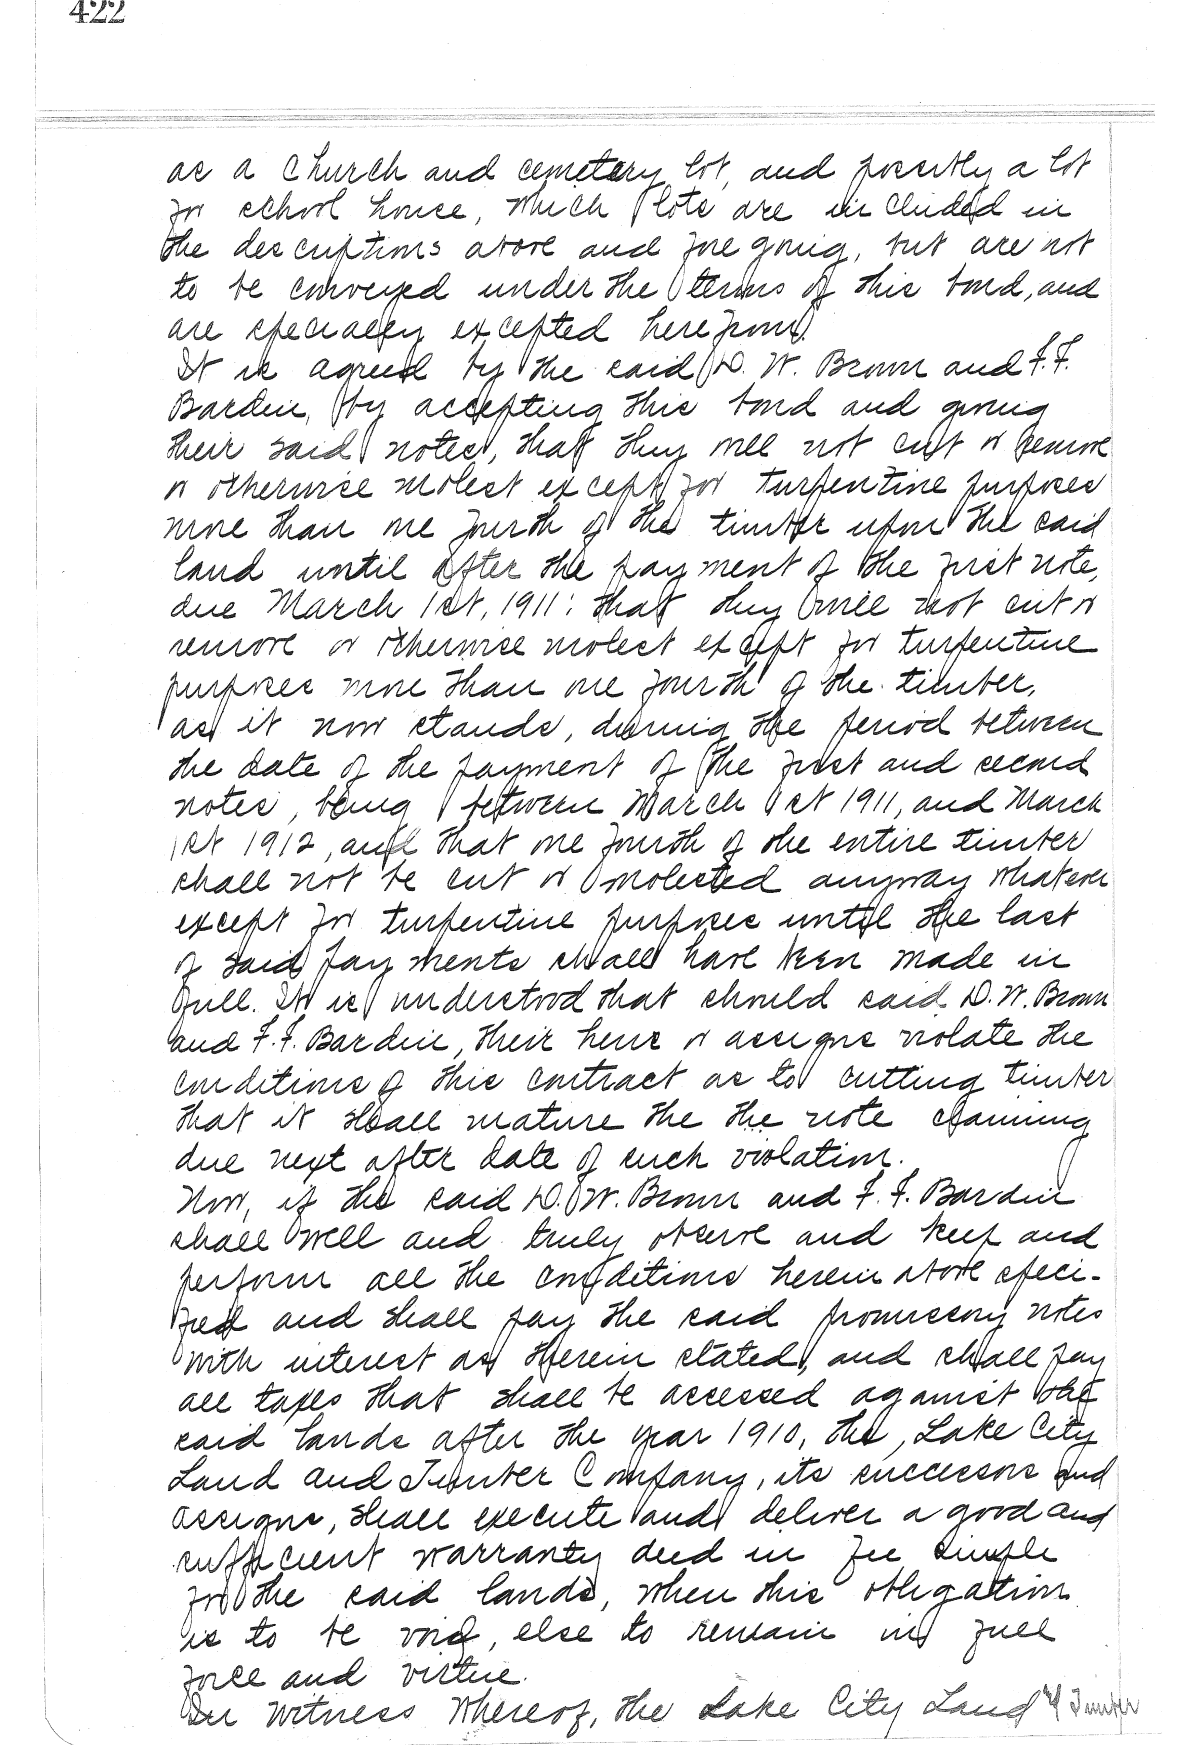 422
as a Church and cemetery lot, and possibly a lot
for school house, which lots are included in
the descriptions above and foregoing, but are not
to be conveyed under the terms of this bond, and
are specially excepted herefrom.
It is agreed by the said D. W. Brown and F. F.
Bardin, by accepting this bond and giving
their said notes, that they will not cut or remove
or otherwise molest except for turpentine purposes
more than one fourth of the timber upon the said
land until after the payment of the first note,
due March 1st, 1911: that they will not cut or
remove or otherwise molest except for turpentine
purposes more than one fourth of the timber,
as it now stands, during the period between
the date of the payment of the first and second
notes, being between March 1st 1911, and March
1st 1912, and that one fourth of the entire timber
shall not be cut or molested anyway whatever
except for turpentine purposes until the last
of said payments shall have been made in
full. It is understood that should said D. W. Brown
and F. F. Bardin, their heirs or assigns violate the
conditions of this contract as to cutting timber
that it shall mature the the note
due next after date of such violation.
Now, if the said D. W. Brown and F. F. Bardin
shall well and truly observe and keep and
perform all the conditions herein above speci-
fied and shall pay the said promissory notes
with interest as therein stated, and shall pay
all taxes that shall be assessed against the
said lands after the year 1910, the, Lake City
Land and Timber Company, its successors and
assigns, shall execute and deliver a good and
sufficient warranty deed in fee simple
for the said lands, when this obligation
is to be void, else to remain in full
force and virtue.
In Witness Whereof, the Lake City Land & Timber